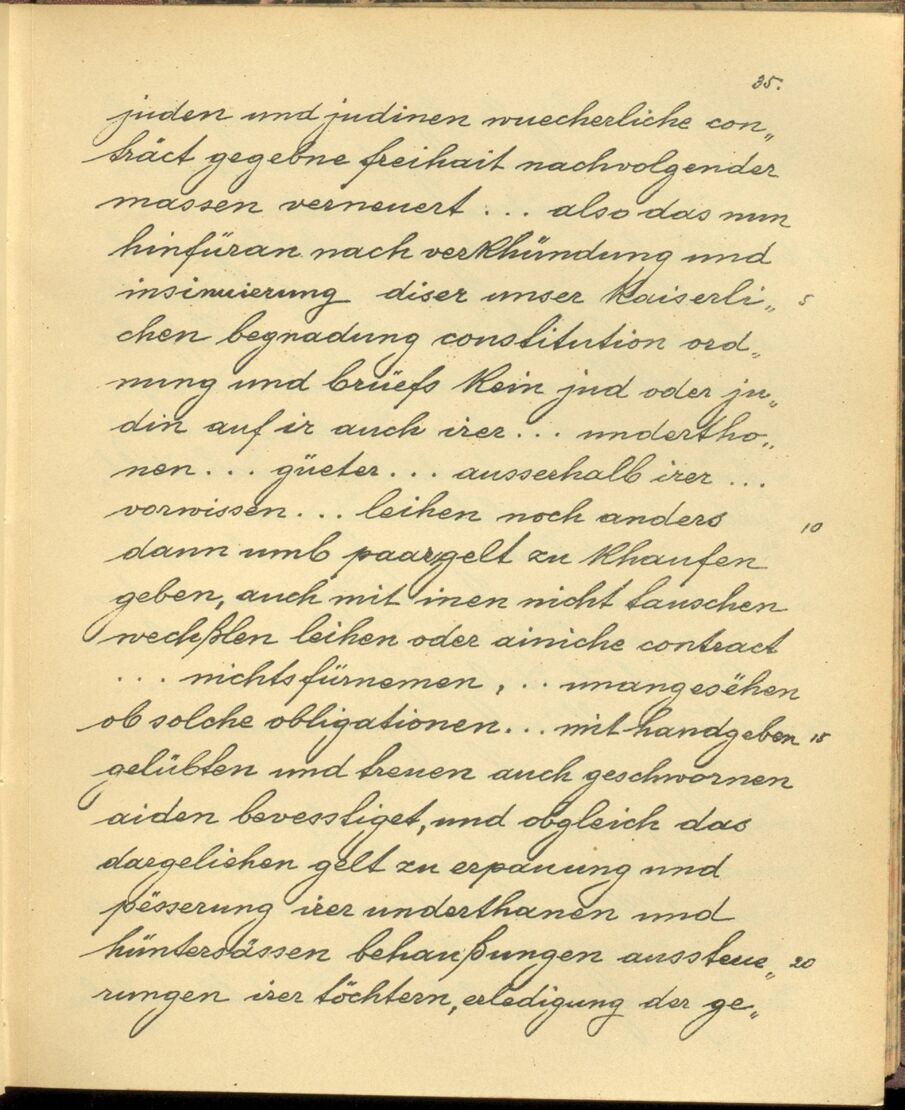 35.
juden und judinen wuecherliche con„
träct gegebne freihait nachvolgender
massen verneuert ... also das nun
hinfüran nach verkhündung und
insinuierung diser unser kaiserli„ 5
chen begnadung constitution ord„
nung und brüefs kein jud oder ju„
din auf ir auch irer ... undertho„
nen ... güeter ... ausserhalb irer ...
vorwissen ... leihen noch anders 10
dann umb paargelt zu khaufen
geben, auch mit inen nicht tauschen
wechßlen leihen oder ainiche contract
... nichts fürnemen, .. unangesëhen
ob solche obligationen ... mit handgeben 15
gelübten und treuen auch geschwornen
aiden bevesstiget, und obgleich das
dargeliehen gelt zu erpauung und
pësserung irer underthanen und
hüntersässen behaußungen aussteue„ 20
rungen irer töchtern, erledigung der ge„